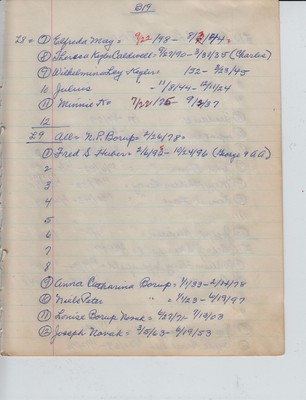 219
L8 = ⑦ Elfreda May = 9/22/98 -
⑧ Theresa Kegler Caldwell = 9/27/90 - 3/31/35 (Charles)
⑨ Wilhelmina Ley Kegler = 152 - 9/23/45
10 Julius - 11/8/44 - 12/11/24
⑪ Minnie K = 7/22/75 - 9/3/37
12
L9 All = N.P. Borup = 2/26/78 =
① Fred S Huber = 2/6/96 - 10/24/96 (George & AA)
2
3
4
5
6
7
8
⑨ Anna Catharina Borup = 1/1/33 - 2/14/78
⑩ Neils Peter " = 1/1/23 - 6/19/97
⑪ Louise Borup Novak = 6/27/71 - 7/19/03
⑫ Joseph Novak = 3/5/63 - 6/19/53